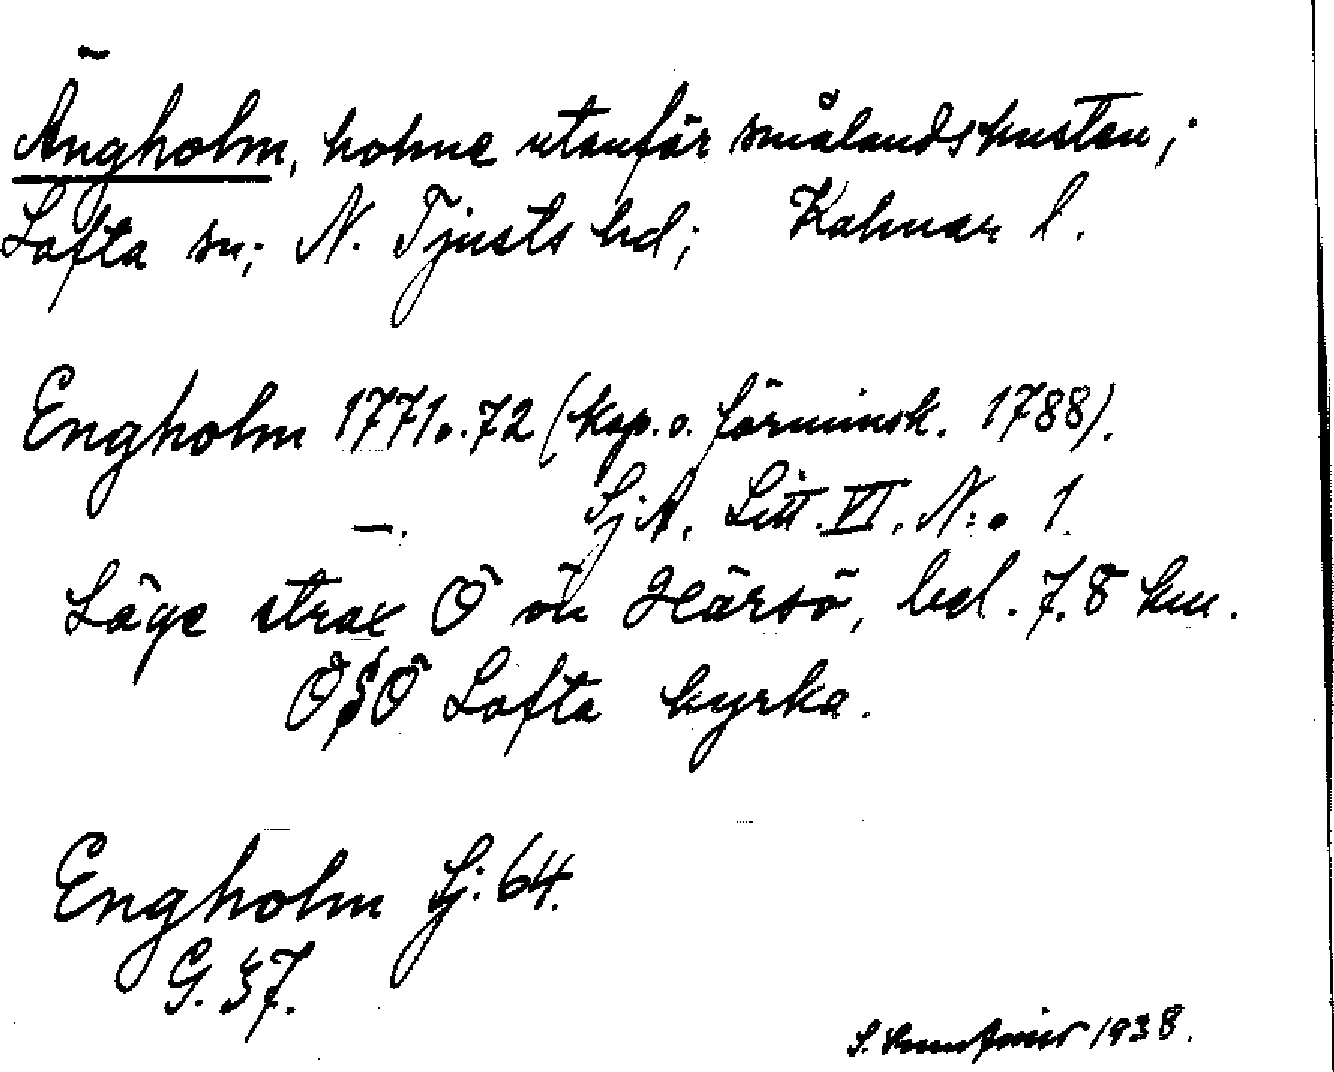 Ängholm, holme utanför smålandskusten;
Lofta sn; N. Tjusts hd; Kalmar l.
Engholm 1771 o. 72 (kop. o. förminsk. 1788).
—. SjA. Litt. VI. N:o 1
Läge strax Ö om Härsö, bel. 7.8 km.
ÖSÖ Lofta kyrka.
Engholm Sj. 64.
G. 57.
S. 1938.